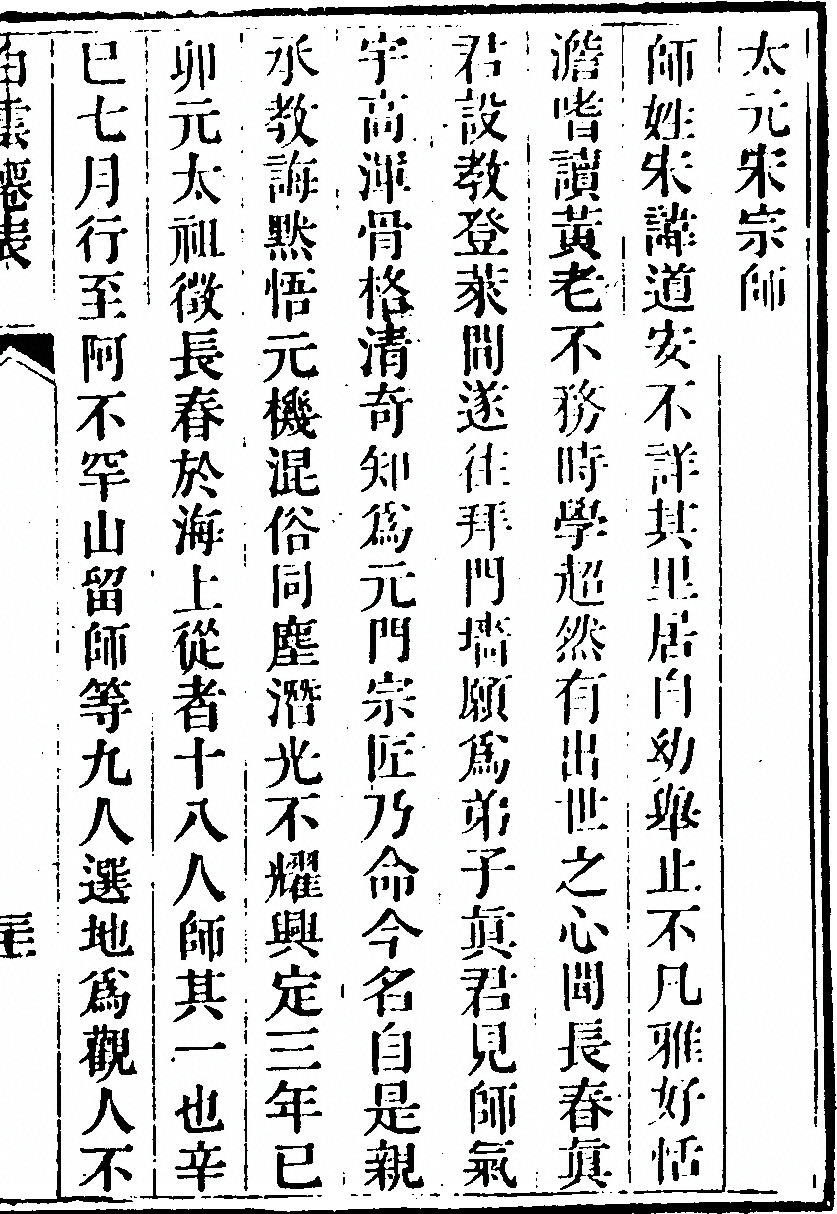 太元宋宗師
師姓宋諱道安不詳其里居自幼舉止不凡雅好恬
澹嗜讀黃老不務時學超然有出世之心聞長春眞
君設教登萊間遂往拜門墻願爲弟子眞君見師氣
宇高渾骨格清奇知爲元門宗匠乃命今名自是親
承教誨默悟元機混俗同塵潛光不耀興定三年已
卯元太祖徵長春於海上從者十八人師其一也辛
巳七月行至阿不罕山留師等九人選地爲觀人不
白雲僊表
三十三